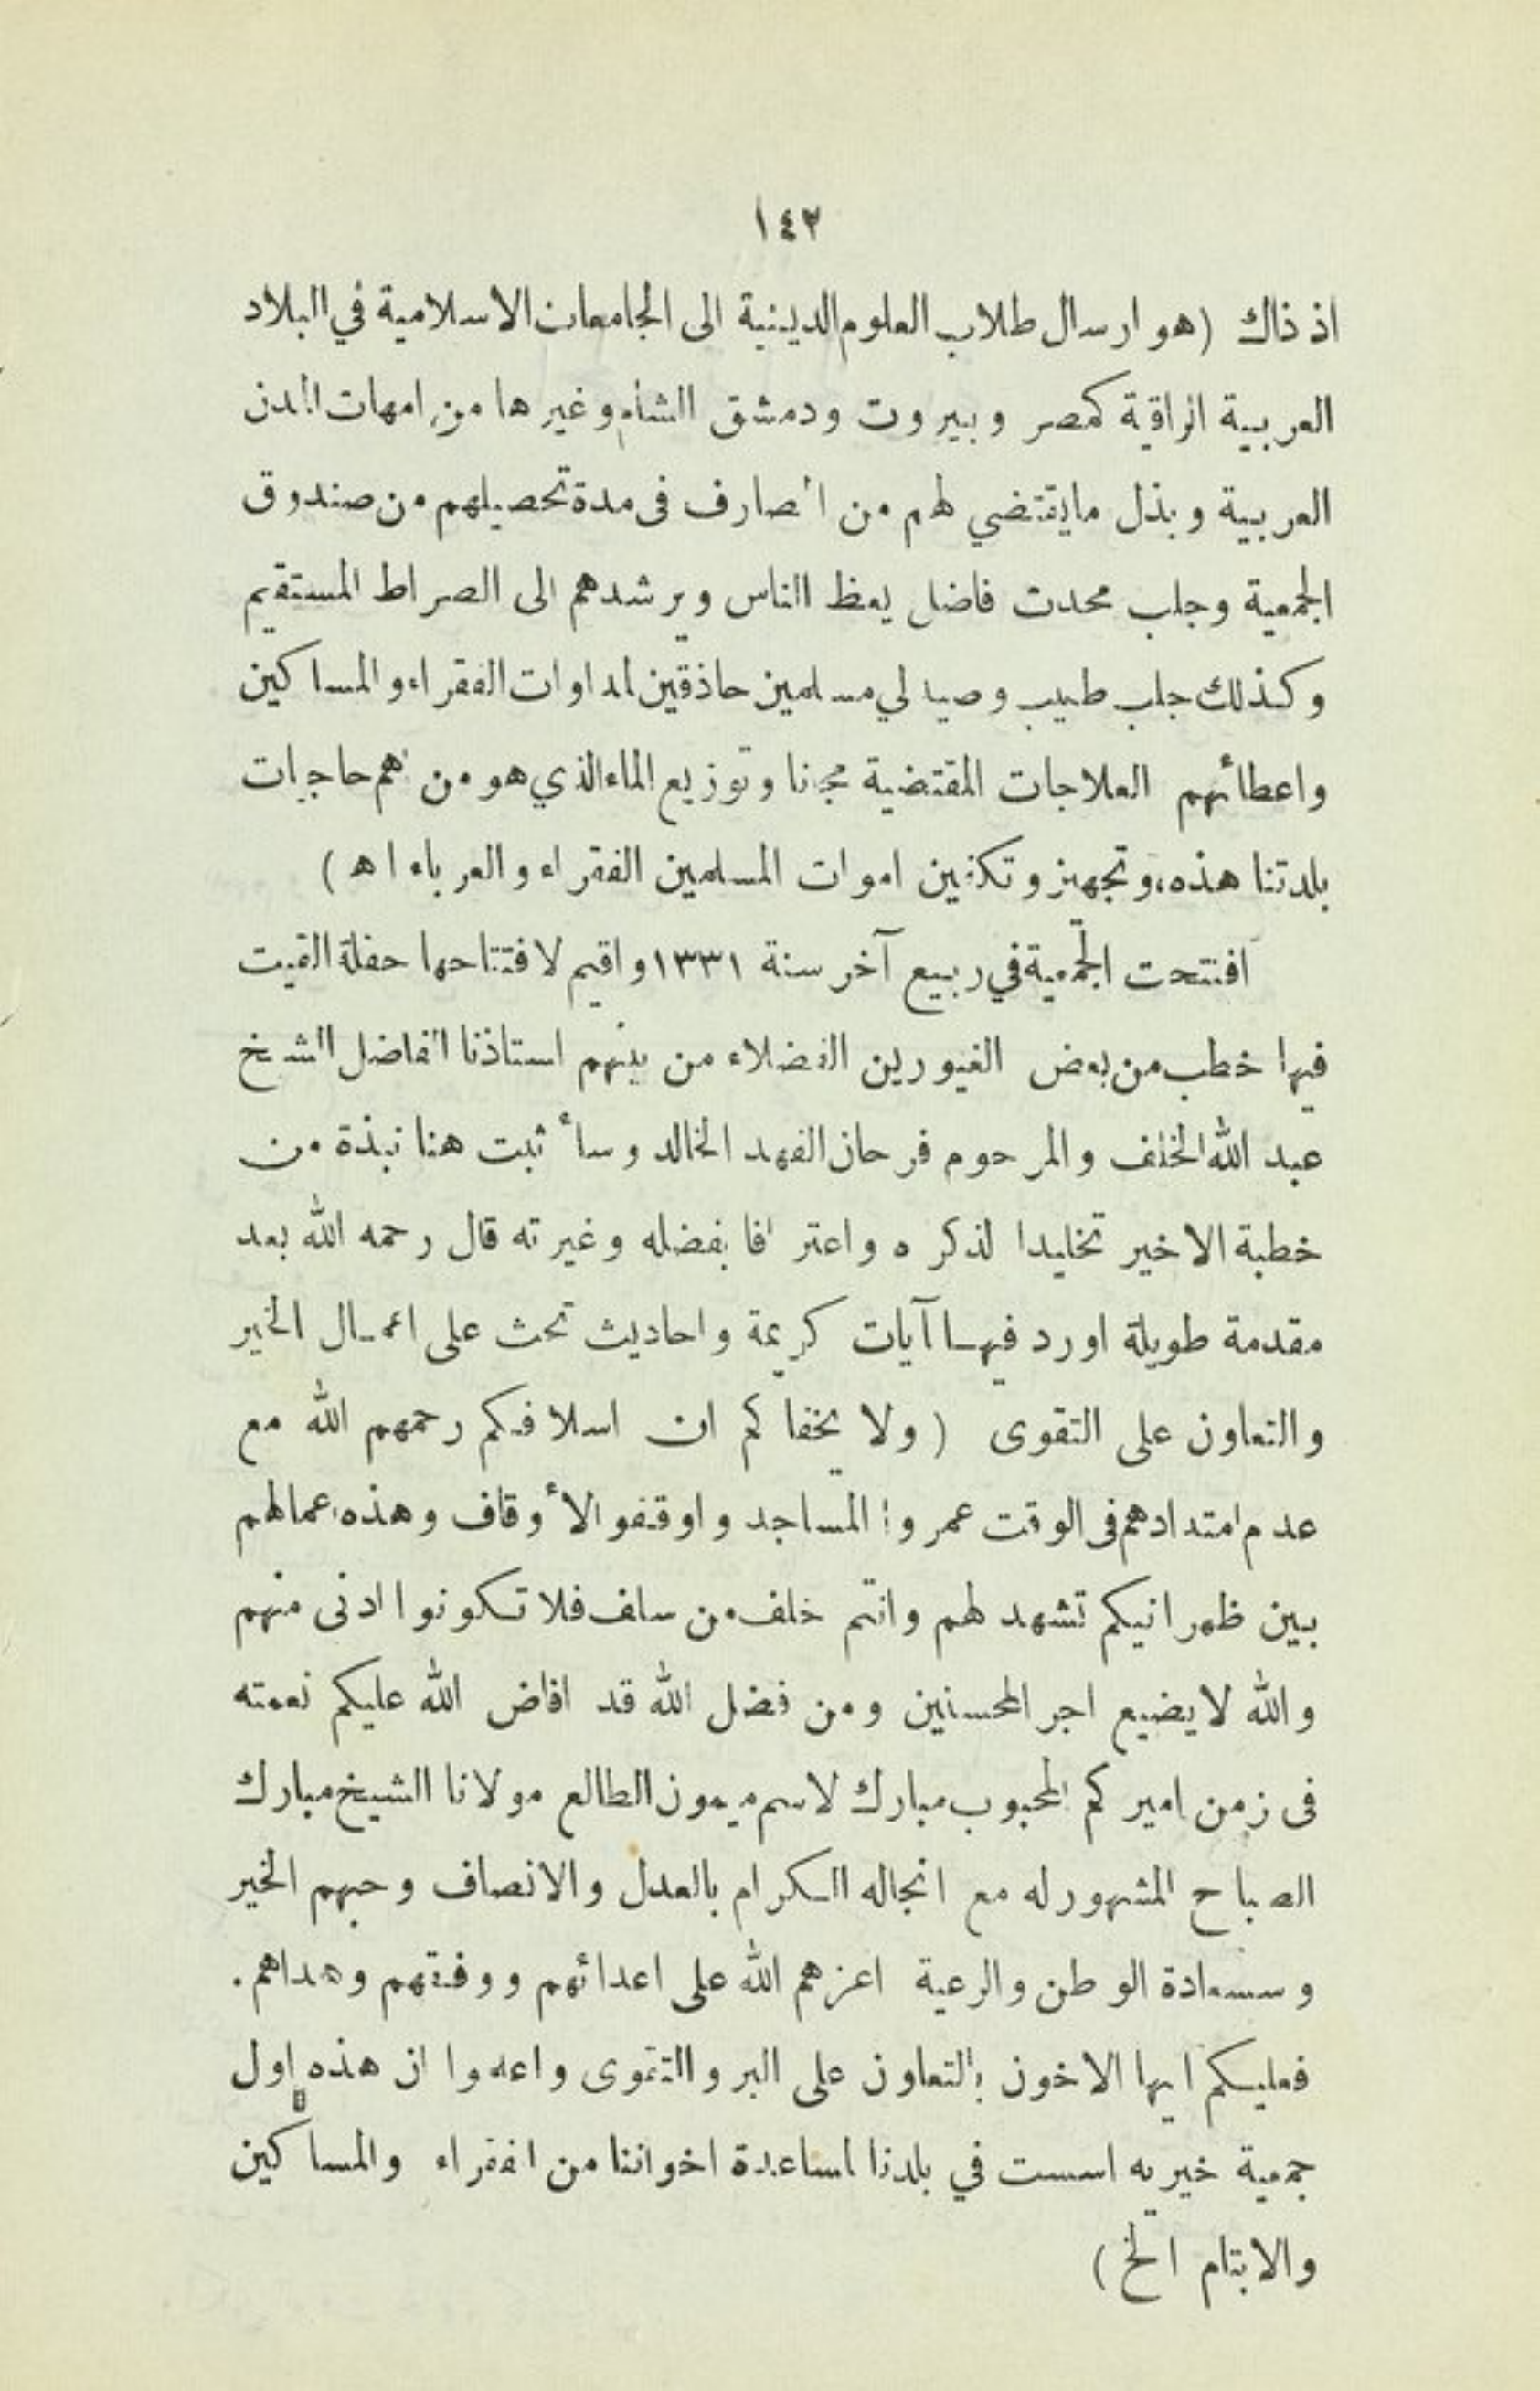 ١٤٢
اذ ذاك (هو ارسال طلاب العلوم الدينية الى الجامعات الاسلامية في البلاد
العربية الراقية كمصر وبيروت ودمشق الشام وغيرها من امهات المدن
العربية وبذل مايقتضي لهم من المصارف فى مدة تحصيلهم من صندوق
الجمعية وجلب محدث فاضل يعظ الناس ويرشدهم الى الصراط المستقيم
وكذلك جلب طبيب وصيدلي مسلمين حاذقين لمداوات الفقراء والمساكين
واعطائهم العلاجات المقتضية مجانا وتوزيع الماء الذي هو من اهم حاجيات
بلدتنا هذه، وتجهيز وتكفين اموات المسلمين الفقراء والغرباء اه)
افتتحت الجمعية في ربيع آخر سنة ١٣٣١ واقيم لافتتاحها حفلة القيت
فيها خطب من بعض الغيورين الفضلاء من بينهم استاذنا الفاضل الشيخ
عبد الله الخلف والمرحوم فرحان الفهد الخالد وسأثبت هنا نبذة من
خطبة الاخير تخليدا لذكره واعترافا بفضله وغيرته قال رحمه الله بعد
مقدمة طويلة اورد فيها آيات كريمة واحاديث تحث على اعمال الخير
والتعاون على التقوى (ولا يخفاكم ان اسلافكم رحمهم الله مع
عدم امتدادهم فى الوقت عمروا المساجد واوقفو الأوقاف وهذه اعمالهم
بين ظهرانيكم تشهد لهم وانتم خلف من سلف فلا تكونوا ادنى منهم
والله لايضيع اجر المحسنين ومن فضل الله قد افاض الله عليكم نعمته
فى زمن اميركم المحبوب مبارك لاسم ميمون الطالع مولانا الشيخ مبارك
الصباح المشهور له مع انجاله الكرام بالعدل والانصاف وحبهم الخير
وسعادة الوطن والرعية اعزهم الله على اعدائهم ووفقهم وهداهم.
فعليكم ايها الاخون بالتعاون على البر والتقوى واعلموا ان هذه اول
جمعية خيريه اسست في بلدنا لمساعدة اخواننا من الفقراء والمساكين
والايتام الخ)